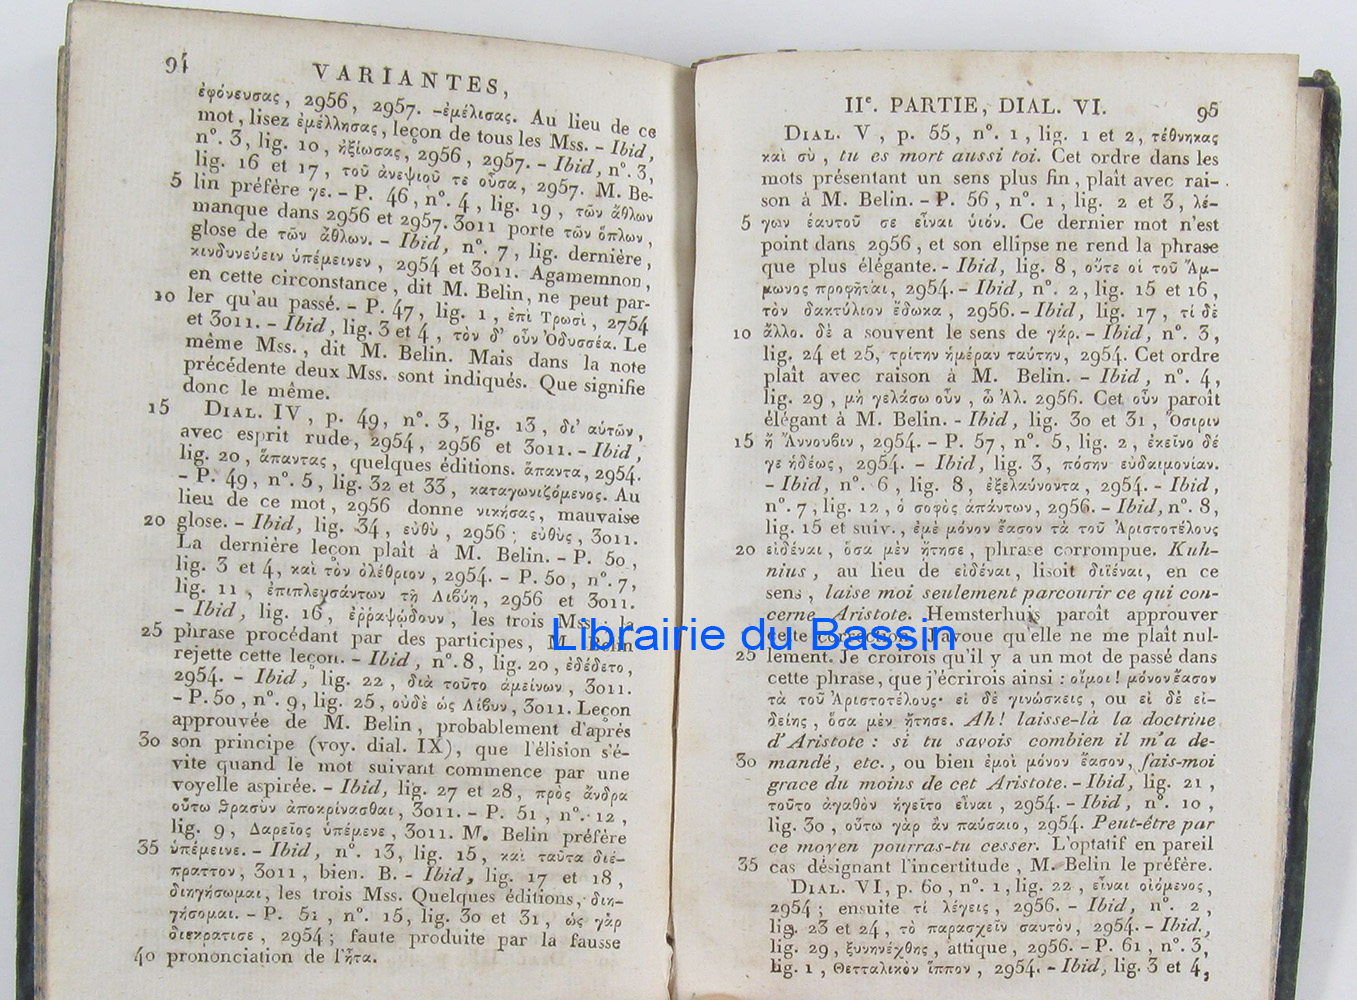 94
VARIANTES,
ἐφόνευσας, 2956, 2957. -ἐμέλισας. Au lieu de ce
mot, lisez ἐμέλλησας, leçon de tous les Mss. - Ibid,
n°. 3, lig. 10, ἠξίωσας, 2956, 2957. - Ibid, n°. 3,
lig. 16 et 17, τοῦ ἀνεψιοῦ τε οὖσα, 2957. M. Be-
5 lin préfère γε. - P. 46, n°. 4, lig. 19, τῶν ἄθλων
manque dans 2956 et 2957. 3011 porte τῶν ὅπλων,
glose de τῶν ἄθλων. - Ibid, n°. 7, lig. dernière,
κινδυνεύειν ὑπέμεινεν, 2954 et 3011. Agamemnon,
en cette circonstance, dit M. Belin, ne peut par-
10 ler qu'au passé. - P. 47, lig. 1, ἐπὶ Τρωσὶ, 2754
et 3011. - Ibid, lig. 3 et 4, τὸν δ' οὖν Ὀδυσσέα. Le
même Mss., dit M. Belin. Mais dans la note
précédente deux Mss. sont indiqués. Que signifie
donc le même.
15 DIAL. IV, p. 49, n°. 3, lig. 13, δι' αὑτῶν,
avec esprit rude, 2954, 2956 et 3011. - Ibid,
lig. 20, ἅπαντας, quelques éditions. ἅπαντα, 2954.
- P. 49, n°. 5, lig. 32 et 33, καταγωνιζόμενος. Au
lieu de ce mot, 2956 donne νικήσας, mauvaise
20 glose. - Ibid, lig. 34, εὐθὺ, 2956; εὐθὺς, 3011.
La dernière leçon plaît à M. Belin. - P. 50,
lig. 3 et 4, καὶ τὸν ὀλέθριον, 2954. - P. 50, n°. 7,
lig. 11, ἐπιπλευσάντων τῇ Λιβύῃ, 2956 et 3011.
- Ibid, lig. 16, ἐῤῥαψῴδουν, les trois Mss.; la
25 phrase procédant par des participes, M. Belin
rejette cette leçon. - Ibid, n°. 8, lig. 20, ἐδέδετο,
2954. - Ibid, lig. 22, διὰ τοῦτο ἀμείνων, 3011.
- P. 50, n°. 9, lig. 25, οὐδὲ ὡς Λίβυν, 3011. Leçon
approuvée de M. Belin, probablement d'après
30 son principe (voy. dial. IX), que l'élision s'é-
vite quand le mot suivant commence par une
voyelle aspirée. - Ibid, lig. 27 et 28, πρὸς ἄνδρα
οὕτω θρασὺν ἀποκρίνασθαι, 3011. - P. 51, n°. 12,
lig. 9, Δαρεῖος ὑπέμενε, 3011. M. Belin préfère
35 ὑπέμεινε. - Ibid, n°. 13, lig. 15, καὶ ταῦτα διέ-
πραττον, 3011, bien. B. - Ibid, lig. 17 et 18,
διηγήσωμαι, les trois Mss. Quelques éditions, διη-
γήσομαι. - P. 51, n°. 15, lig. 30 et 31, ὡς γὰρ
διεκρατισε, 2954; faute produite par la fausse
40 prononciation de l'ἦτα.
IIe. PARTIE, DIAL. VI. 95
DIAL. V, p. 55, n°. 1, lig. 1 et 2, τέθνηκας
καὶ σὺ, tu es mort aussi toi. Cet ordre dans les
mots présentant un sens plus fin, plaît avec rai-
son à M. Belin. - P. 56, n°. 1, lig. 2 et 3, λέ-
5 γων ἑαυτοῦ σε εἶναι υἱόν. Ce dernier mot n'est
point dans 2956, et son ellipse ne rend la phrase
que plus élégante. - Ibid, lig. 8, οὔτε οἱ τοῦ Ἄμ-
μωνος προφῆται, 2954. - Ibid, n°. 2, lig. 15 et 16,
τὸν δακτύλιον ἔδωκα, 2956. - Ibid, lig. 17, τί δὲ
10 ἄλλο. δὲ a souvent le sens de γάρ. - Ibid, n°. 3,
lig. 24 et 25, τρίτην ἡμέραν ταύτην, 2954. Cet ordre
plaît avec raison à M. Belin. - Ibid, n°. 4,
lig. 29, μὴ γελάσω οὖν, ὦ Ἀλ. 2956. Cet οὖν paroît
élégant à M. Belin. - Ibid, lig. 30 et 31, Ὄσιριν
15 ἢ Ἄννουβιν, 2954. - P. 57, n°. 5, lig. 2, ἐκεῖνο δέ
γε ἡδέως, 2954. - Ibid, lig. 3, πόσην εὐδαιμονίαν.
- Ibid, n°. 6, lig. 8, ἐξελαύνοντα, 2954. - Ibid,
n°. 7, lig. 12, ὁ σοφὸς ἁπάντων, 2956. - Ibid, n°. 8,
lig. 15 et suiv., ἐμὲ μόνον ἔασον τὰ τοῦ Ἀριστοτέλους
20 εἰδέναι, ὅσα μὲν ᾔτησε, phrase corrompue. Kuh-
nius, au lieu de εἰδέναι, lisoit διϊέναι, en ce
sens, laise moi seulement parcourir ce qui con-
cerne Aristote. Hemsterhuis paroît approuver
cette correction. J'avoue qu'elle ne me plaît nul-
25 lement. Je croirois qu'il y a un mot de passé dans
cette phrase, que j'écrirois ainsi : οἴμοι! μόνον ἔασον
τὰ τοῦ Ἀριστοτέλους· εἰ δὲ γινώσκεις, ou εἰ δὲ εἰ-
δείης, ὅσα μὲν ᾔτησε. Ah! laisse-là la doctrine
d'Aristote : si tu savois combien il m'a de-
30 mandé, etc., ou bien ἐμοὶ μόνον ἔασον, fais-moi
grace du moins de cet Aristote. - Ibid, lig. 21,
τοῦτο ἀγαθὸν ἡγεῖτο εἶναι, 2954. - Ibid, n°. 10,
lig. 30, οὕτω γὰρ ἂν παύσαιο, 2954. Peut-être par
ce moyen pourras-tu cesser. L'optatif en pareil
35 cas désignant l'incertitude, M. Belin le préfère.
DIAL. VI, p. 60, n°. 1, lig. 22, εἶναι οἰόμενος,
2954; ensuite τί λέγεις, 2956. - Ibid, n°. 2,
lig. 23 et 24, τὸ παρασχεῖν σαυτὸν, 2954. - Ibid.,
lig. 29, ξυνηνέχθης, attique, 2956. - P. 61, n°. 3,
lig. 1, Θετταλικὸν ἵππον, 2954. - Ibid, lig. 3 et 4,
Librairie du Bassin